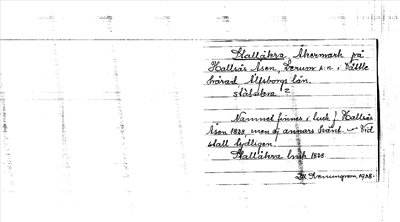 Stallåkra Åkermark på
Hallsås Åsen, Lerum s:n i Vättle
härad Älfsborgs län.
stålåkra 2
Namnet finnes i luk f. Hallsås
Åsen 1828, men ej annars känt. – Vid
stall tydligen.
Stallåkra luk 1828
1928